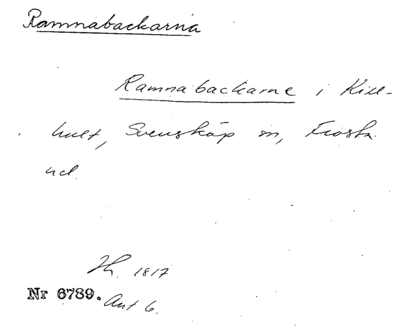 Ramnabackarna
Ramnabackarne i Kill-
hult, Svensköp sn, Frosta
hd.
Th. 1817
Nr 6789. Ant 6.